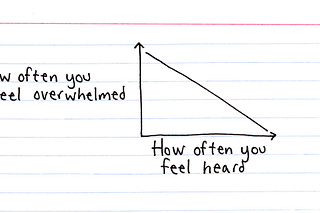 w often you
eel overwhelmed
How often you
feel heard